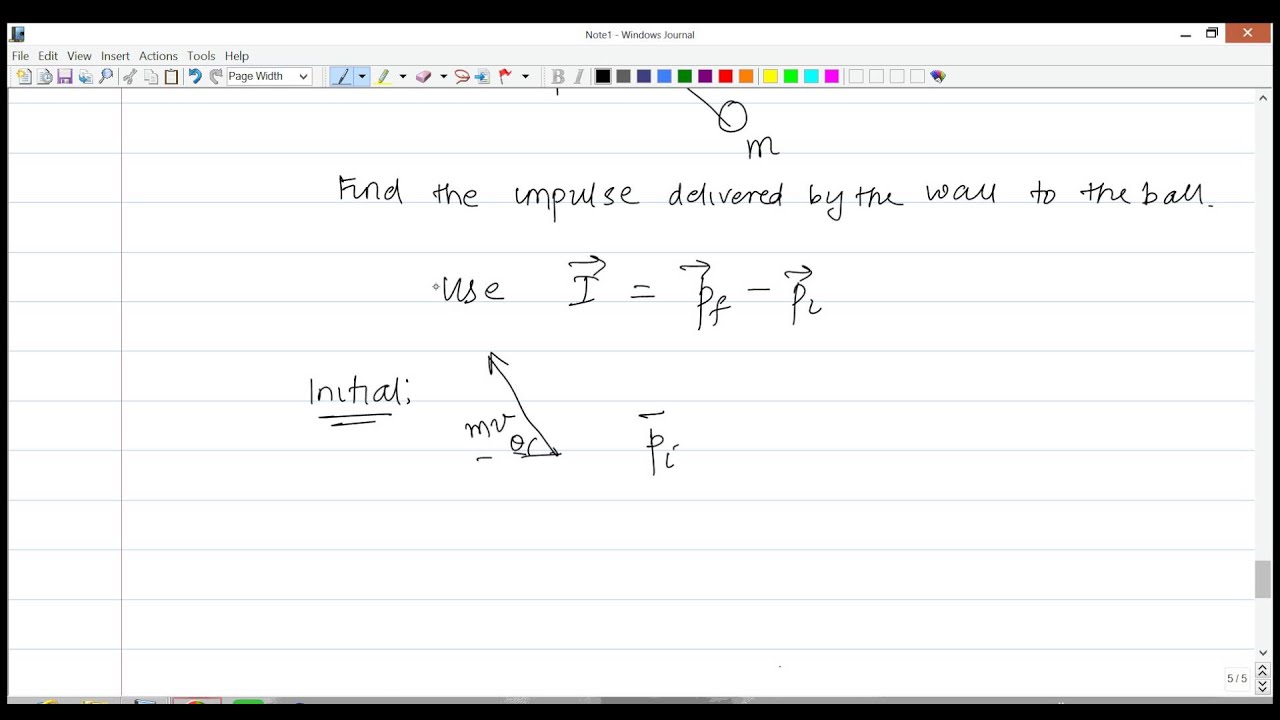 Note1 - Windows Journal
File Edit View Insert Actions Tools Help
Page Width B I
m
Find the impulse delivered by the wall to the ball.
Use I⃗ = p⃗f - p⃗i
Initial:
mv θ
pi
5 / 5